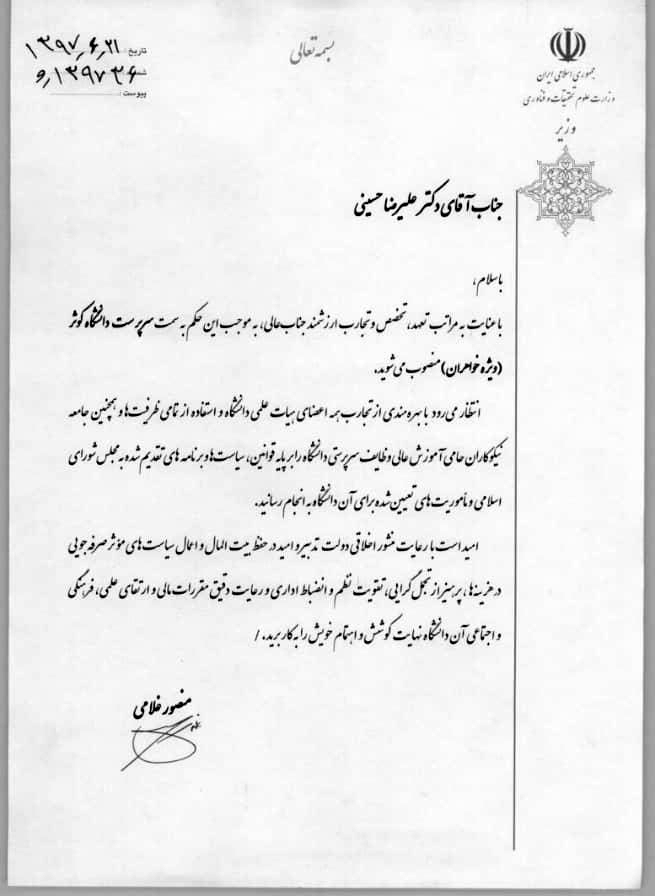 بسمه تعالی
جمهوری اسلامی ایران
وزارت علوم تحقیقات و فناوری
وزیر
تاریخ: ۱۳۹۷٫۶٫۲۱
۱۳۹۷۳۶٫و
پیوست:
جناب آقای دکتر علیرضا حسینی
با سلام،
با عنایت به مراتب تعهد، تخصص و تجارب ارزشمند جنابعالی، به موجب این حکم به سمت سرپرست دانشگاه کوثر
(ویژه خواهران) منصوب می شوید.
انتظار می رود با بهره مندی از تجارب همه اعضای هیات علمی دانشگاه و استفاده از تمامی ظرفیت ها و همچنین جامعه
نیکوکاران حامی آموزش عالی وظایف سرپرستی دانشگاه را بر پایه قوانین، سیاست ها و برنامه های تقدیم شده به مجلس شورای
اسلامی و مأموریت های تعیین شده برای آن دانشگاه به انجام رسانید.
امید است با رعایت منشور اخلاقی دولت تدبیر و امید در حفظ بیت المال و اعمال سیاست های مؤثر صرفه جویی
در هزینه ها، پرهیز از تجمل گرایی، تقویت نظم و انضباط اداری و رعایت دقیق مقررات مالی و ارتقای علمی، فرهنگی
و اجتماعی آن دانشگاه نهایت کوشش و اهتمام خویش را به کار برید. /
منصور غلامی